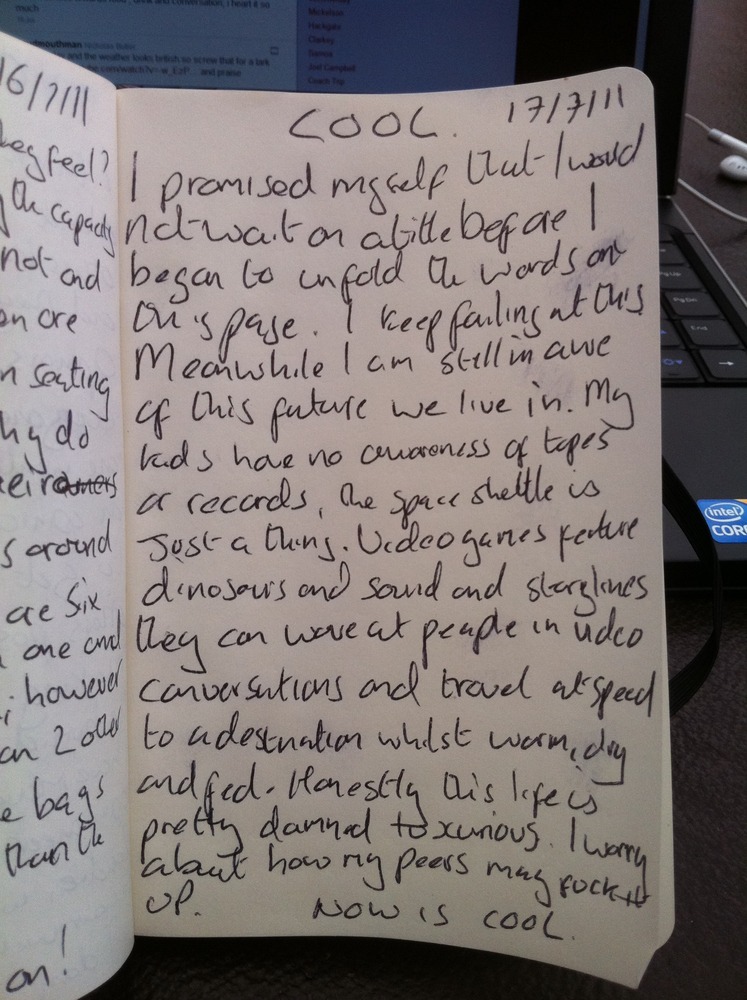 much
and the weather looks british so screw that for a lark
and praise
Mickelson
Hackgate
Clarkey
Samoa
Joel Campbell
16/7/11
they feel?
the capacity
not and
on are
seating
why do
their owners
s around
are six
one and
however
an 2 other
e bags
than the
on!
COOL. 17/7/11
I promised myself that I would
not wait on a title before I
began to unfold the words on
this page. I keep failing at this
Meanwhile I am still in awe
of this future we live in. My
kids have no awareness of tapes
or records, the space shettle is
just a thing. Videogames feature
dinosaurs and sound and storylines
they can wave at people in video
conversations and travel at speed
to a destination whilst warm, dry
and fed. Honestly this life is
pretty damned toxurious. I worry
about how my peers may fuck it
UP. NOW IS COOL.
PgUp
PgDn
End
intel
CORE